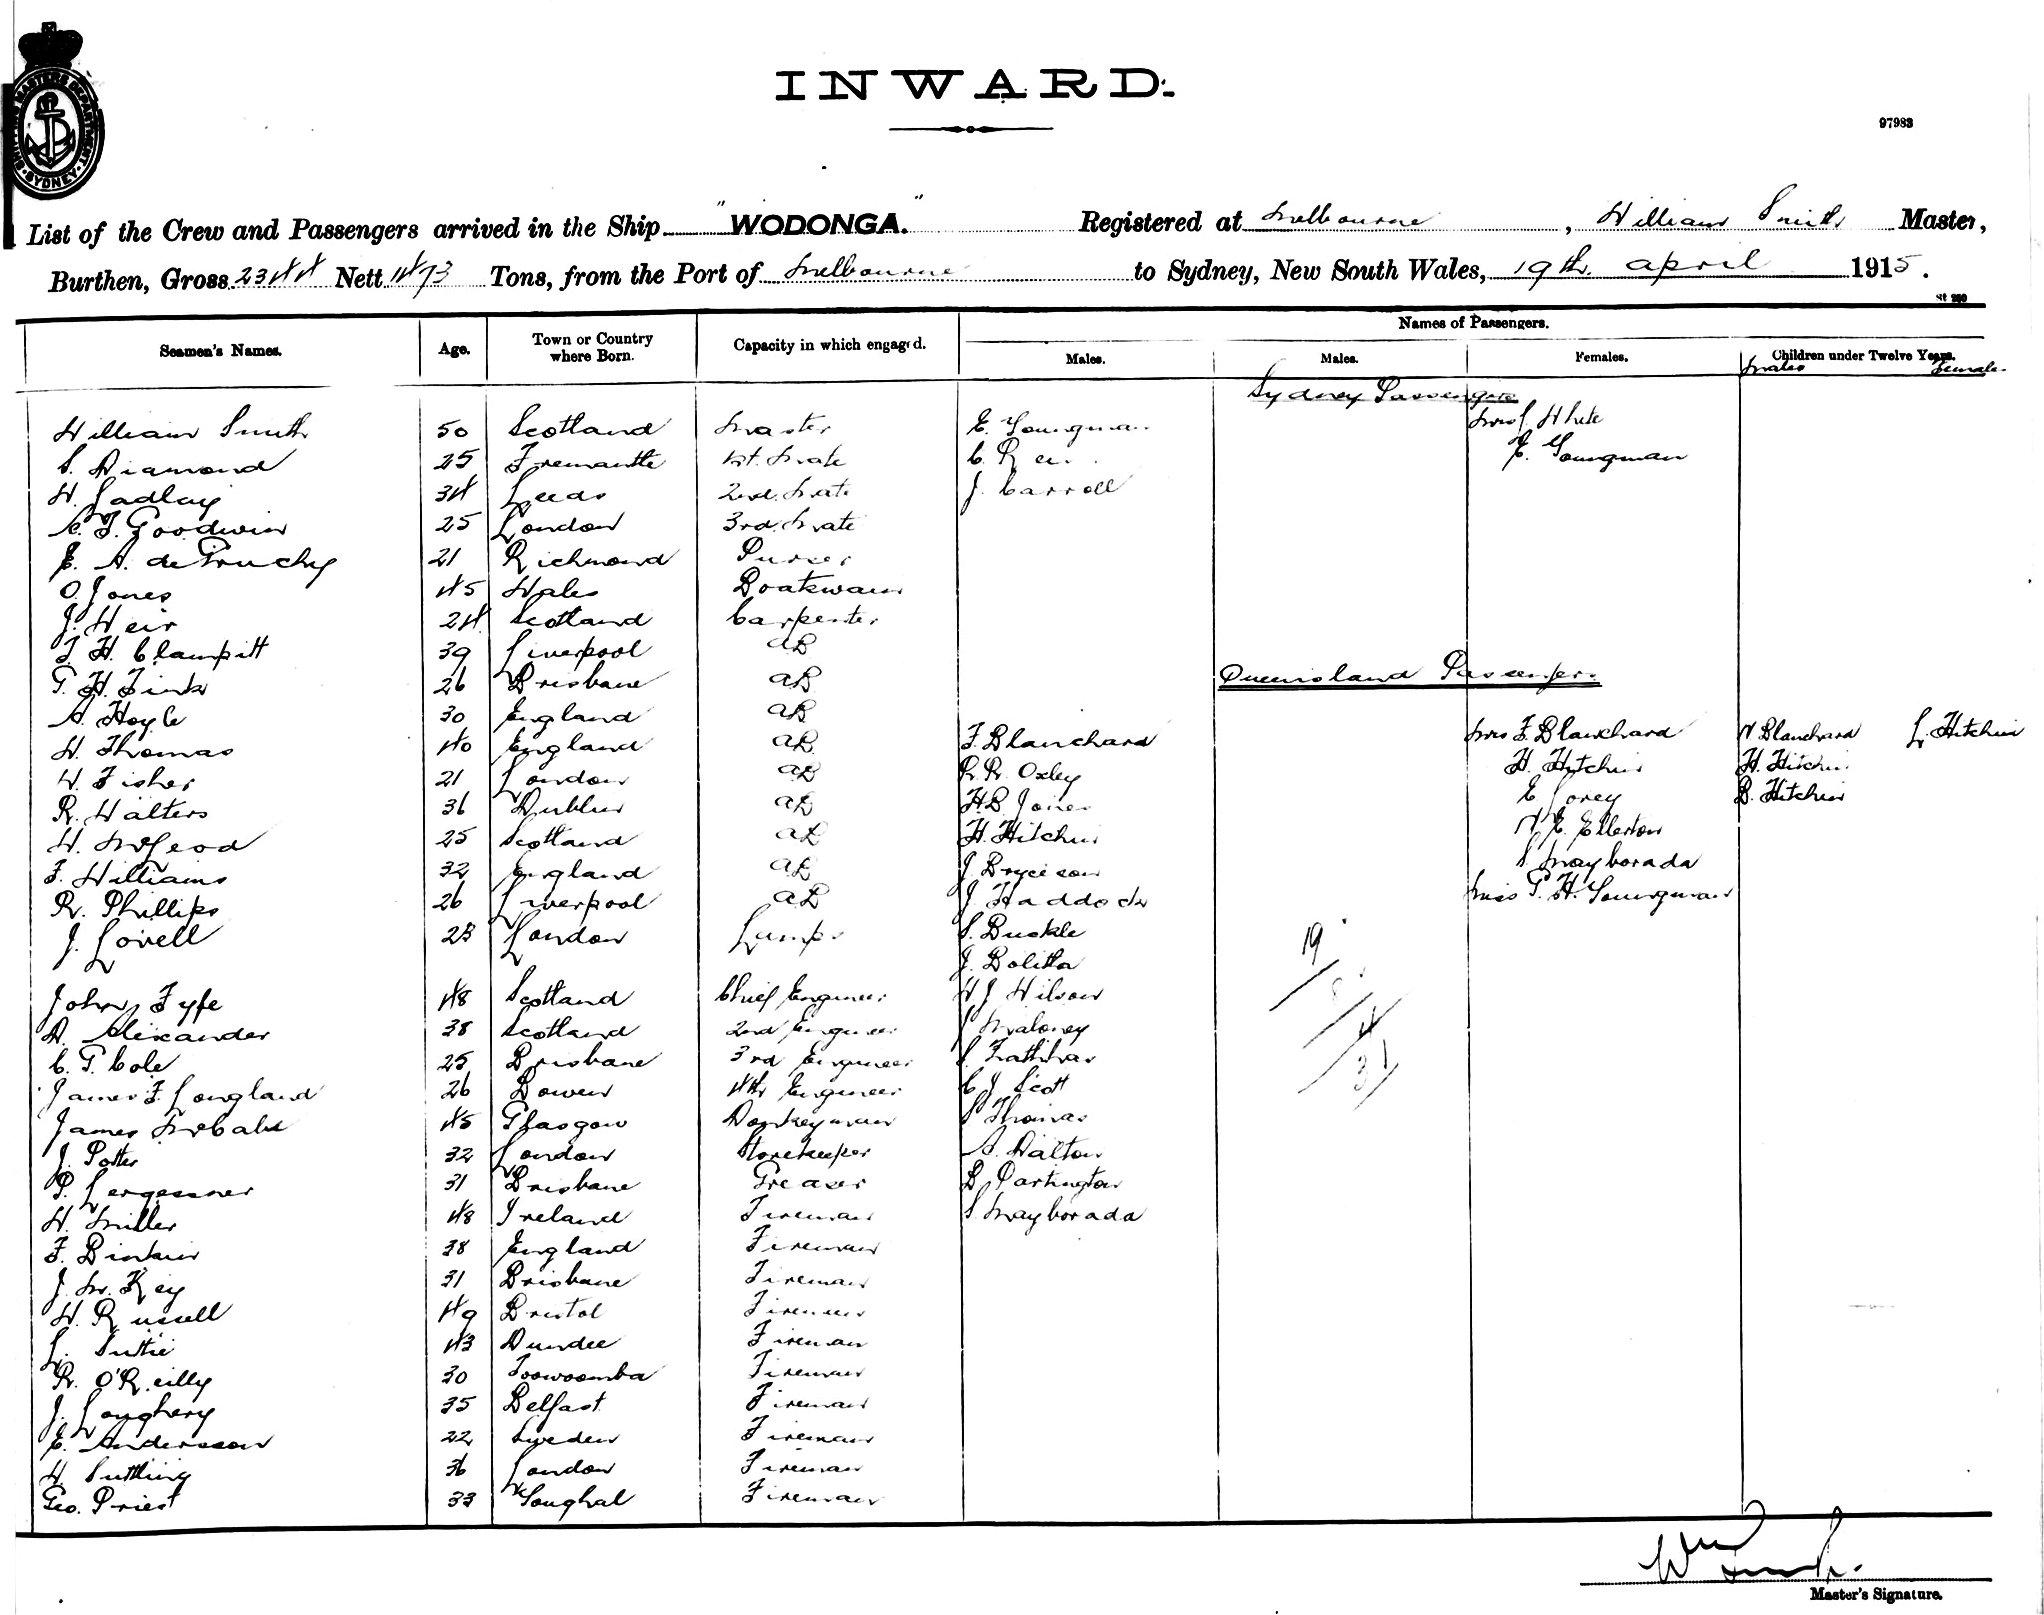 INWARD.
97983
SHIPPING MASTERS DEPARTMENT SYDNEY
List of the Crew and Passengers arrived in the Ship "WODONGA." Registered at Melbourne, William Smith Master,
Burthen, Gross 2344 Nett 1473 Tons, from the Port of Melbourne to Sydney, New South Wales, 19th April 1915.
Names of Passengers.
Seamen's Names. Age. Town or Country where Born. Capacity in which engaged. Males. Males. Females. Children under Twelve Years.
Males Females
Sydney Passengers
William Smith 50 Scotland Master E. Youngman Mrs J White
S. Diamond 25 Fremantle 1st. Mate C. E. Youngman
H. Ladlay 34 Leeds 2nd. Mate J. Carroll
C. F. Goodwin 25 London 3rd. Mate
E. A. de Pruchy 21 Richmond Purser
O. Jones 45 Wales Boatswain
J. Weir 24 Scotland Carpenter
T. H. Clampitt 39 Liverpool AB
G. H. Fink 26 Brisbane AB
Queensland Passengers
A. Hoyle 30 England AB
W. Thomas 40 England AB F. Blanchard Mrs F. Blanchard N Blanchard L. Hitchin
W. Fisher 21 London AB R. R. Oxley H. Hitchin H. Hitchin
R. Walters 36 Dublin AB H B Jones E Lorey B. Hitchin
W. McLeod 25 Scotland AB H. Hitchin E. Ellerton
F. Williams 32 England AB J. Bryceson S Mayborada
R. Phillips 26 Liverpool AB J Haddock Miss G. H. Youngman
J. Lovell 23 London Lamps S. Buckle
19
J. Bolitho
John Fyfe 48 Scotland Chief Engineer W J Wilson
A. Alexander 38 Scotland 2nd Engineer J Maloney
4
C. G. Cole 25 Brisbane 3rd Engineer
31
James F Longland 26 Bowen 4th Engineer C J Scott
James McCabe 45 Glasgow Donkeyman S Thomas
J. Potter 32 London Storekeeper A. Dalton
P. Jergessner 31 Brisbane Greaser B. Partington
W. Miller 48 Ireland Fireman S. Mayborada
F. Binkin 38 England Fireman
J. M. Key 31 Brisbane Fireman
W. Russell 49 Bristol Fireman
L. Suttie 43 Dundee Fireman
R. O'Reilly 30 Toowoomba Fireman
J. Loughery 35 Belfast Fireman
E. Andersson 22 Sweden Fireman
W Suttling 36 London Fireman
Geo. Priest 33 Youghal Fireman
Wm Smith
Master's Signature.